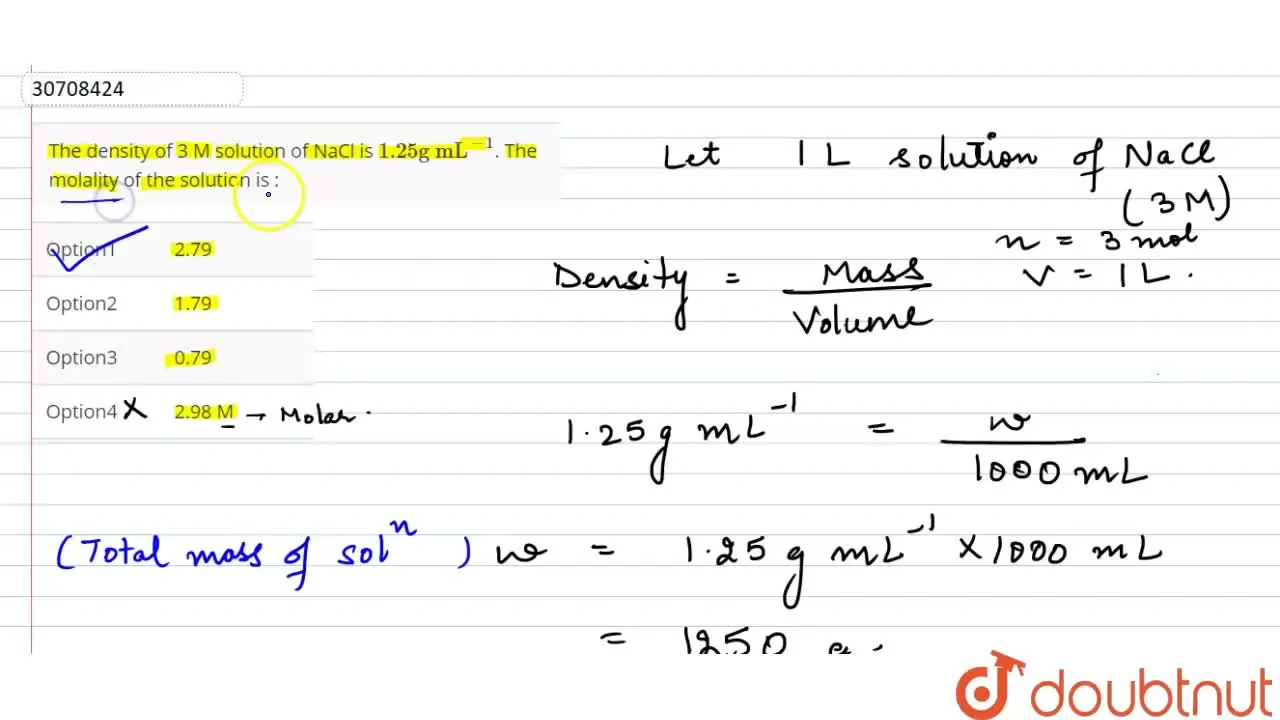 30708424
The density of 3 M solution of NaCl is 1.25g mL⁻¹. The
molality of the solution is :
Option1 2.79
Option2 1.79
Option3 0.79
Option4 × 2.98 M → Molar.
Let 1 L solution of NaCl
(3M)
n = 3 mol
Density = Mass / Volume
V = 1 L.
1.25 g mL⁻¹ = w / 1000 mL
(Total mass of solⁿ) w = 1.25 g mL⁻¹ × 1000 mL
= 1250 g.
doubtnut